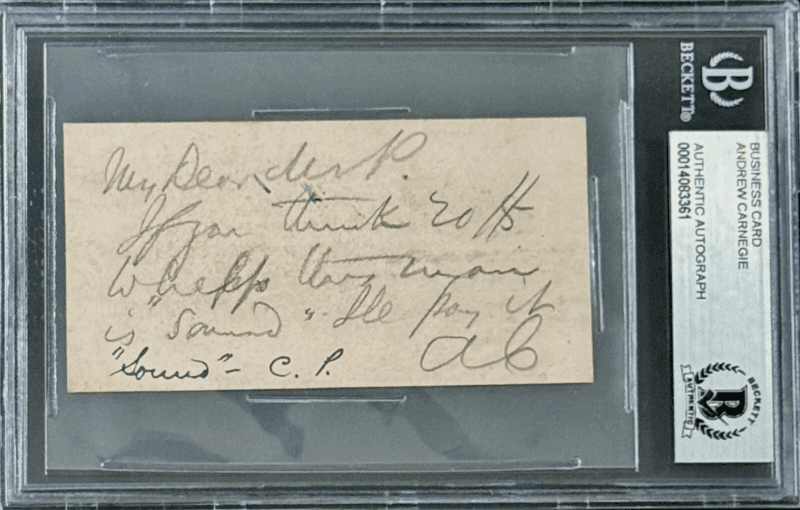 My Dear P.
If you think 20
this man
is "Sound" Ile pay it
AC
"Sound" - C. P.
BECKETT®
B
BUSINESS CARD
ANDREW CARNEGIE
AUTHENTIC AUTOGRAPH
00014083361
BECKETT
AUTHENTIC
B